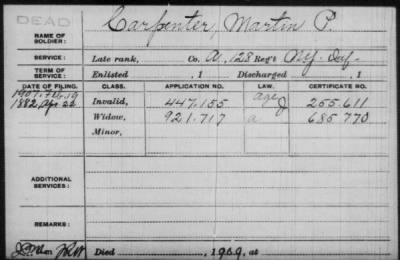 DEAD
NAME OF SOLDIER: Carpenter, Martin P.
SERVICE: Late rank, Co. A, 128 Reg't Inf.
TERM OF SERVICE: Enlisted , 1 Discharged , 1
DATE OF FILING. CLASS. APPLICATION NO. LAW. CERTIFICATE NO.
1907. Feb. 19 age
1882 Apr 22 Invalid, 447.155 J 255.611
Widow, 921.717 a 685 770
Minor,
ADDITIONAL SERVICES:
REMARKS:
Died , 1909, at